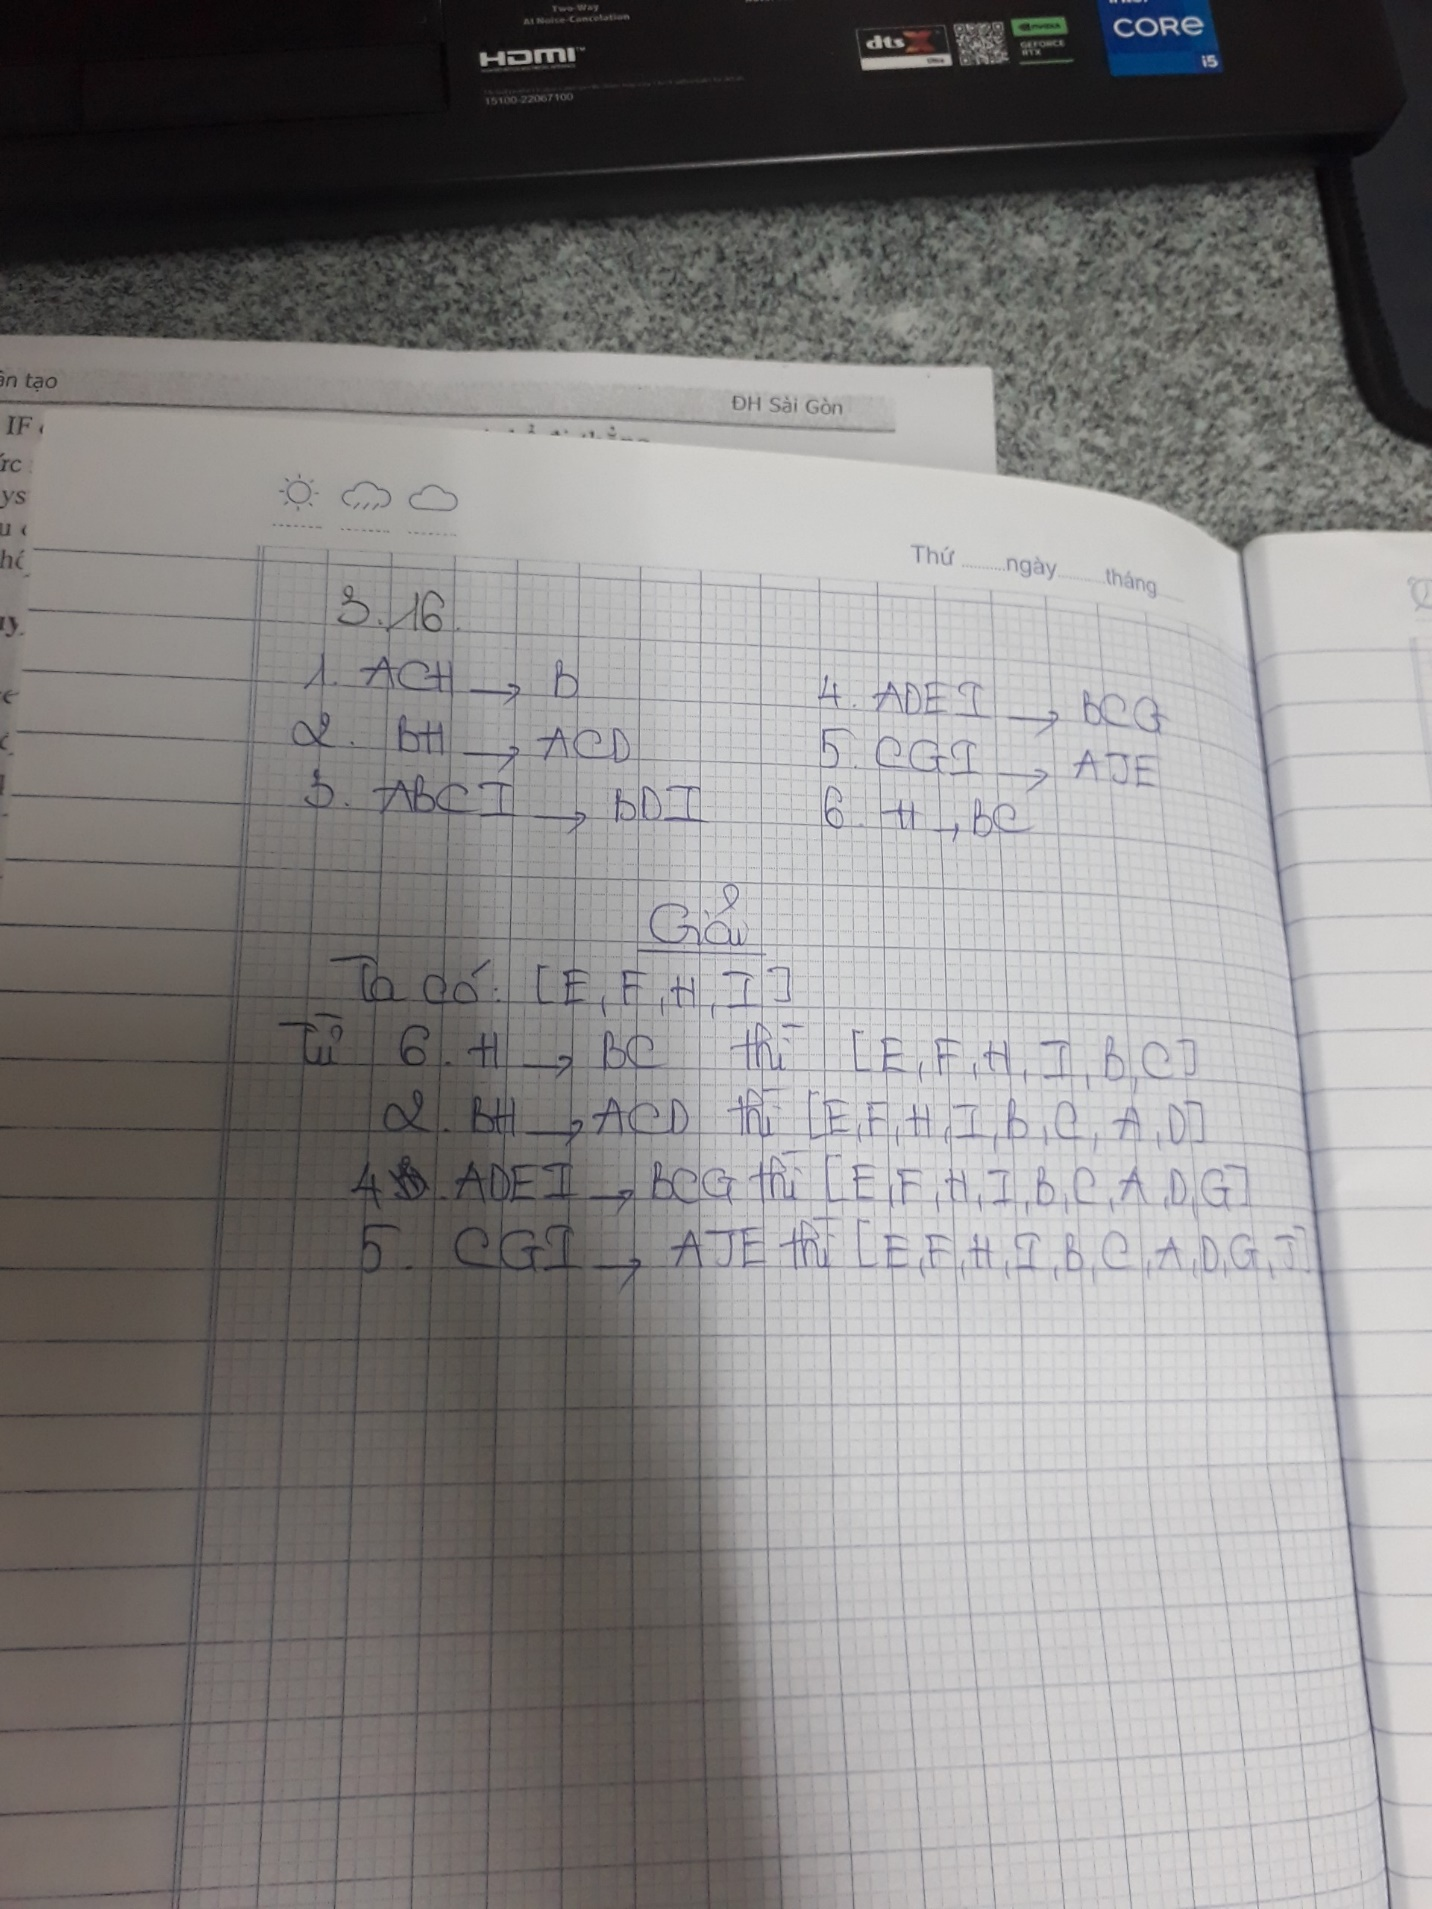 Two-Way
AI Noise-Cancelation
HDMI™
15100-22067100
dts X
Ultra
NVIDIA
GEFORCE
RTX
CORE
i5
ân tạo
ĐH Sài Gòn
IF
ys
Thứ ........ngày........tháng
3.16.
1. ACH → B
2. BH → ACD
3. ABCI → BDI
4. ADEI → BCG
5. CGI → AJE
6. H → BC
Giải
Ta có: [E, F, H, I]
Từ 6. H → BC thì [E, F, H, I, B, C]
2. BH → ACD thì [E, F, H, I, B, C, A, D]
4. ADEI → BCG thì [E, F, H, I, B, C, A, D, G]
5. CGI → AJE thì [E, F, H, I, B, C, A, D, G, J]